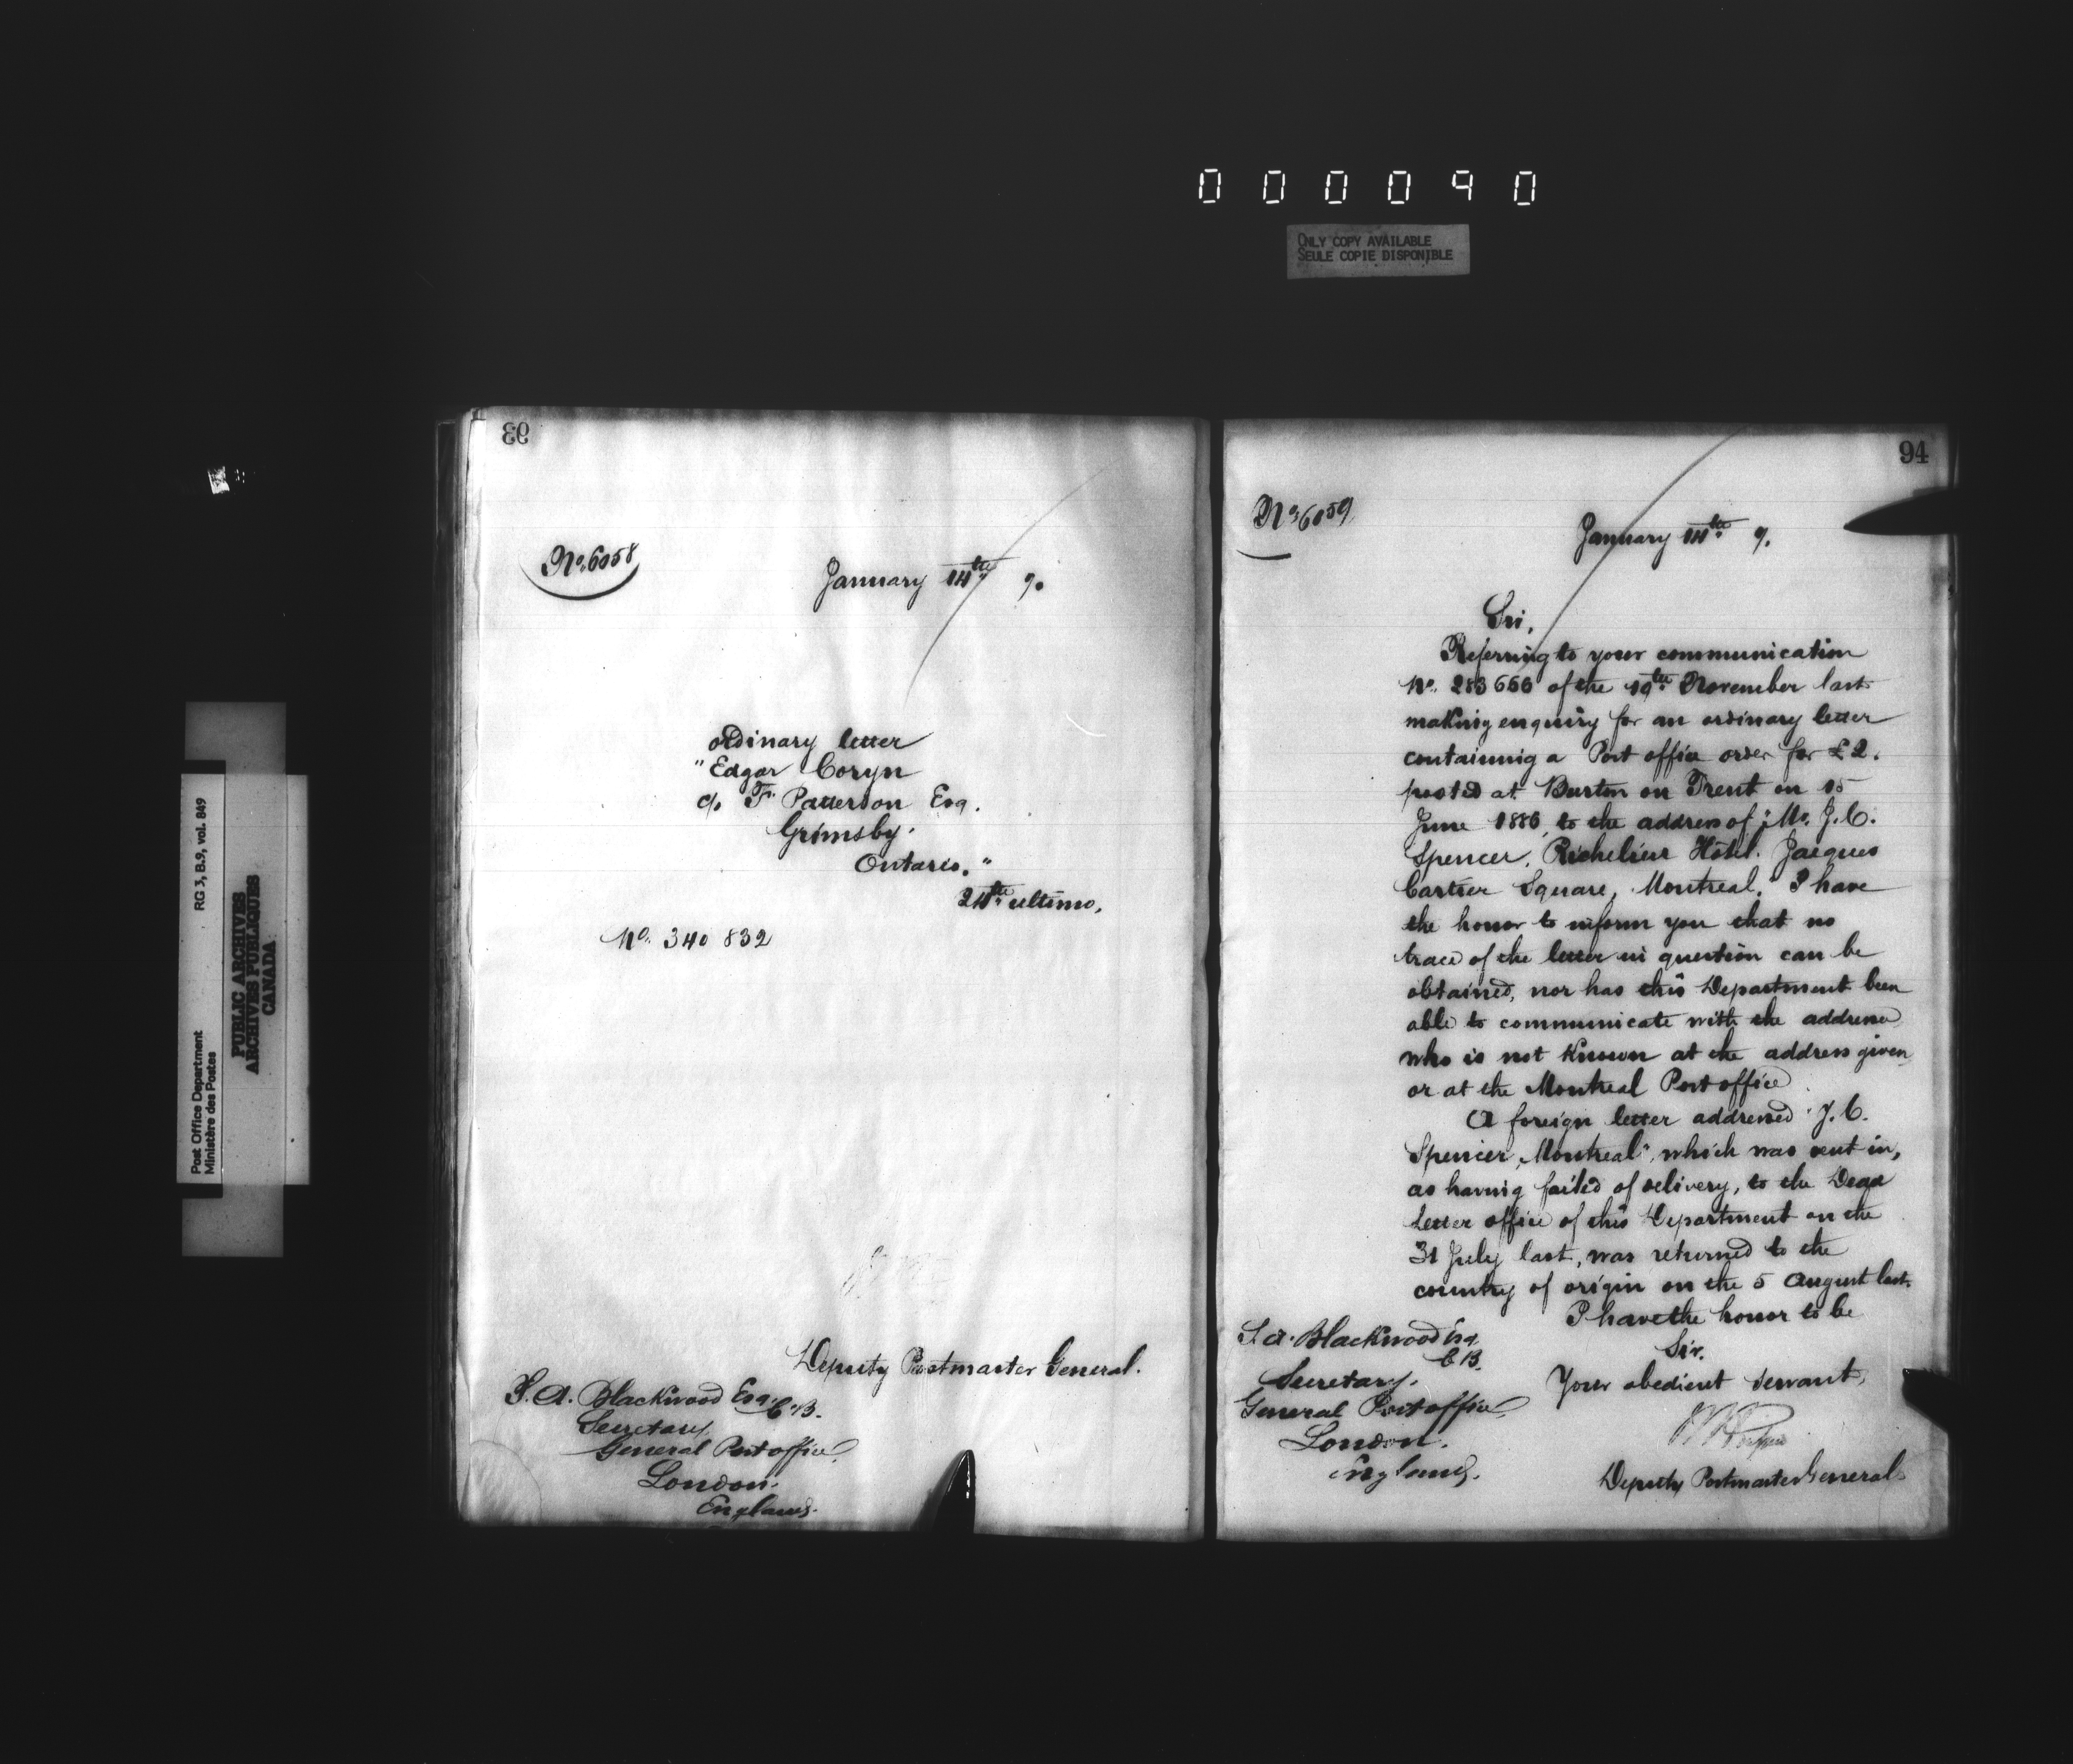 000090
ONLY COPY AVAILABLE
SEULE COPIE DISPONIBLE
Post Office Department
Ministère des Postes
RG 3, B.9, vol. 849
PUBLIC ARCHIVES
ARCHIVES PUBLIQUES
CANADA
93
No. 6058
January 14th 7.
ordinary letter
"Edgar Coryn
c/o F. Patterson Esq.
Grimsby.
Ontario."
24th ultimo.
No. 340 832
Deputy Postmaster General.
S. A. Blackwood Esq. C.B.
Secretary
General Post office
London.
England.
94
No. 6059
January 14th 7.
Sir,
Referring to your communication
No. 283666 of the 19th November last
making enquiry for an ordinary letter
containing a Post office order for £2.
posted at Burton on Trent on 15
June 1886, to the address of "Mr. J. C.
Spencer, Richelieu Hôtel. Jacques
Cartier Square, Montreal." I have
the honor to inform you that no
trace of the letter in question can be
obtained, nor has this Department been
able to communicate with the addressee
who is not known at the address given
or at the Montreal Post office
A foreign letter addressed "J. C.
Spencer, Montreal", which was sent in,
as having failed of delivery, to the Dead
Letter office of this Department on the
31 July last, was returned to the
country of origin on the 5 August last.
I have the honor to be
Sir.
Your obedient servant,
Deputy Postmaster General
S. A. Blackwood Esq.
C B.
Secretary.
General Post office
London.
England.